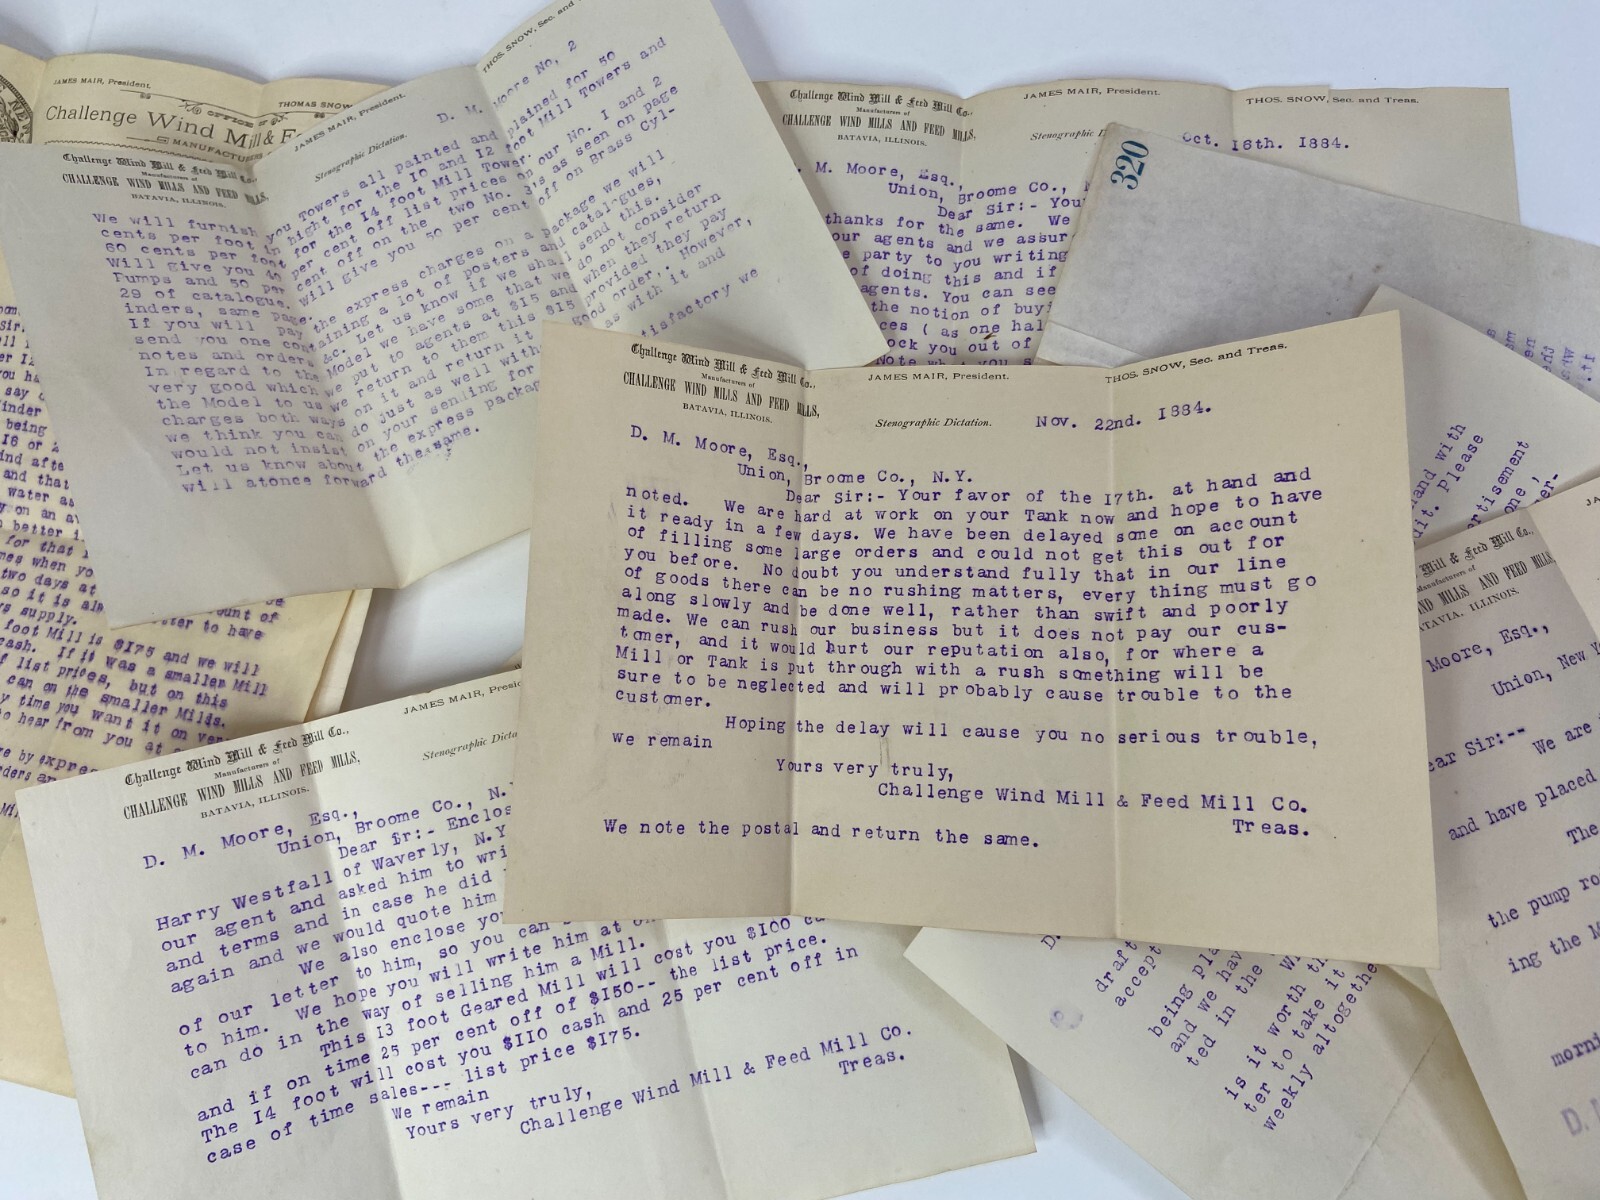 JAMES MAIR, President.
OFFICE OF
THOMAS SNOW
Challenge Wind Mill & Fe
MANUFACTUR
THOS. SNOW, Sec. and
JAMES MAIR, President.
Stenographic Dictation.
D. M. Moore No. 2
Challenge Wind Mill & Feed Mill Co.,
Manufacturers of
CHALLENGE WIND MILLS AND FEED MILLS,
BATAVIA, ILLINOIS.
We will furnish you Towers all painted and plained for 50
cents per foot in hight for the 10 and 12 foot Mill Towers and
60 cents per foot for the 14 foot Mill Tower.
Will give you 40 per cent off list prices on our No. 1 and 2
Pumps and 50 per cent off on the two No. 3's as seen on page
29 of catalogue. Will give you 50 per cent off on Brass Cyl-
inders, same page.
If you will pay the express charges on a package we will
send you one containing a lot of posters and catalogues,
notes and orders &c. Let us know if we shall send this.
In regard to the Model we have some that we do not consider
very good which we put to agents at $15 and when they return
the Model to us we return to them this $15 provided they pay
charges both ways on it and return it in good order,. However,
we think you can do just as well without as with it and
would not insist on your sending for
Let us know about the express package
will atonce forward the same.
satisfactory we
Challenge Wind Mill & Feed Mill Co.,
Manufacturers of
CHALLENGE WIND MILLS AND FEED MILLS,
BATAVIA, ILLINOIS.
JAMES MAIR, President.
THOS. SNOW, Sec. and Treas.
Stenographic D
Oct. 16th. 1884.
. M. Moore, Esq.,
Union, Broome Co., N
Dear Sir:- You
thanks for the same. We
our agents and we assur
e party to you writing
of doing this and if
agents. You can see
the notion of buyi
ces ( as one hal
ock you out of
Note wh you s
320
and with
dit. Please
ertisement
one ,
er-
foot Mill is $175 and we will
cash. If it was a smaller Mill
f list prices, but on this
can on the smaller Mills.
y time you want it on very
to hear from you at
re by expres
rders an
Challenge Wind Mill & Feed Mill Co.,
Manufacturers of
CHALLENGE WIND MILLS AND FEED MILLS,
BATAVIA, ILLINOIS.
JAMES MAIR, President.
THOS. SNOW, Sec. and Treas.
Stenographic Dictation.
Nov. 22nd. 1884.
D. M. Moore, Esq.,
Union, Broome Co., N.Y.
Dear Sir:- Your favor of the 17th. at hand and
noted. We are hard at work on your Tank now and hope to have
it ready in a few days. We have been delayed some on account
of filling some large orders and could not get this out for
you before. No doubt you understand fully that in our line
of goods there can be no rushing matters, every thing must go
along slowly and be done well, rather than swift and poorly
made. We can rush our business but it does not pay our cus-
tomer, and it would hurt our reputation also, for where a
Mill or Tank is put through with a rush something will be
sure to be neglected and will probably cause trouble to the
customer.
Hoping the delay will cause you no serious trouble,
we remain
Yours very truly,
Challenge Wind Mill & Feed Mill Co.
Treas.
We note the postal and return the same.
Challenge Wind Mill & Feed Mill Co.,
Manufacturers of
CHALLENGE WIND MILLS AND FEED MILLS,
BATAVIA, ILLINOIS.
JAMES MAIR, Presid
Stenographic Dicta
D. M. Moore, Esq.,
Union, Broome Co., N.Y
Dear Sir:- Enclos
Harry Westfall of Waverly, N.Y
our agent and asked him to wri
and terms and in case he did
again and we would quote him
We also enclose you
of our letter to him, so you can
to him. We hope you will write him at on
can do in the way of selling him a Mill.
This 13 foot Geared Mill will cost you $100 ca
and if on time 25 per cent off of $150-- the list price.
The 14 foot will cost you $110 cash and 25 per cent off in
case of time sales--- list price $175.
We remain
Yours very truly,
Challenge Wind Mill & Feed Mill Co.
Treas.
D.
draft
accept
being pla
and we hav
ted in the
is it worth th
ter to take it
weekly altogethe
Mill & Feed Mill Co.,
Manufacturers of
ND MILLS AND FEED MILLS,
TAVIA, ILLINOIS.
Moore, Esq.,
Union, New Y
ear Sir:--
We are
and have placed
The
the pump ro
ing the M
morni